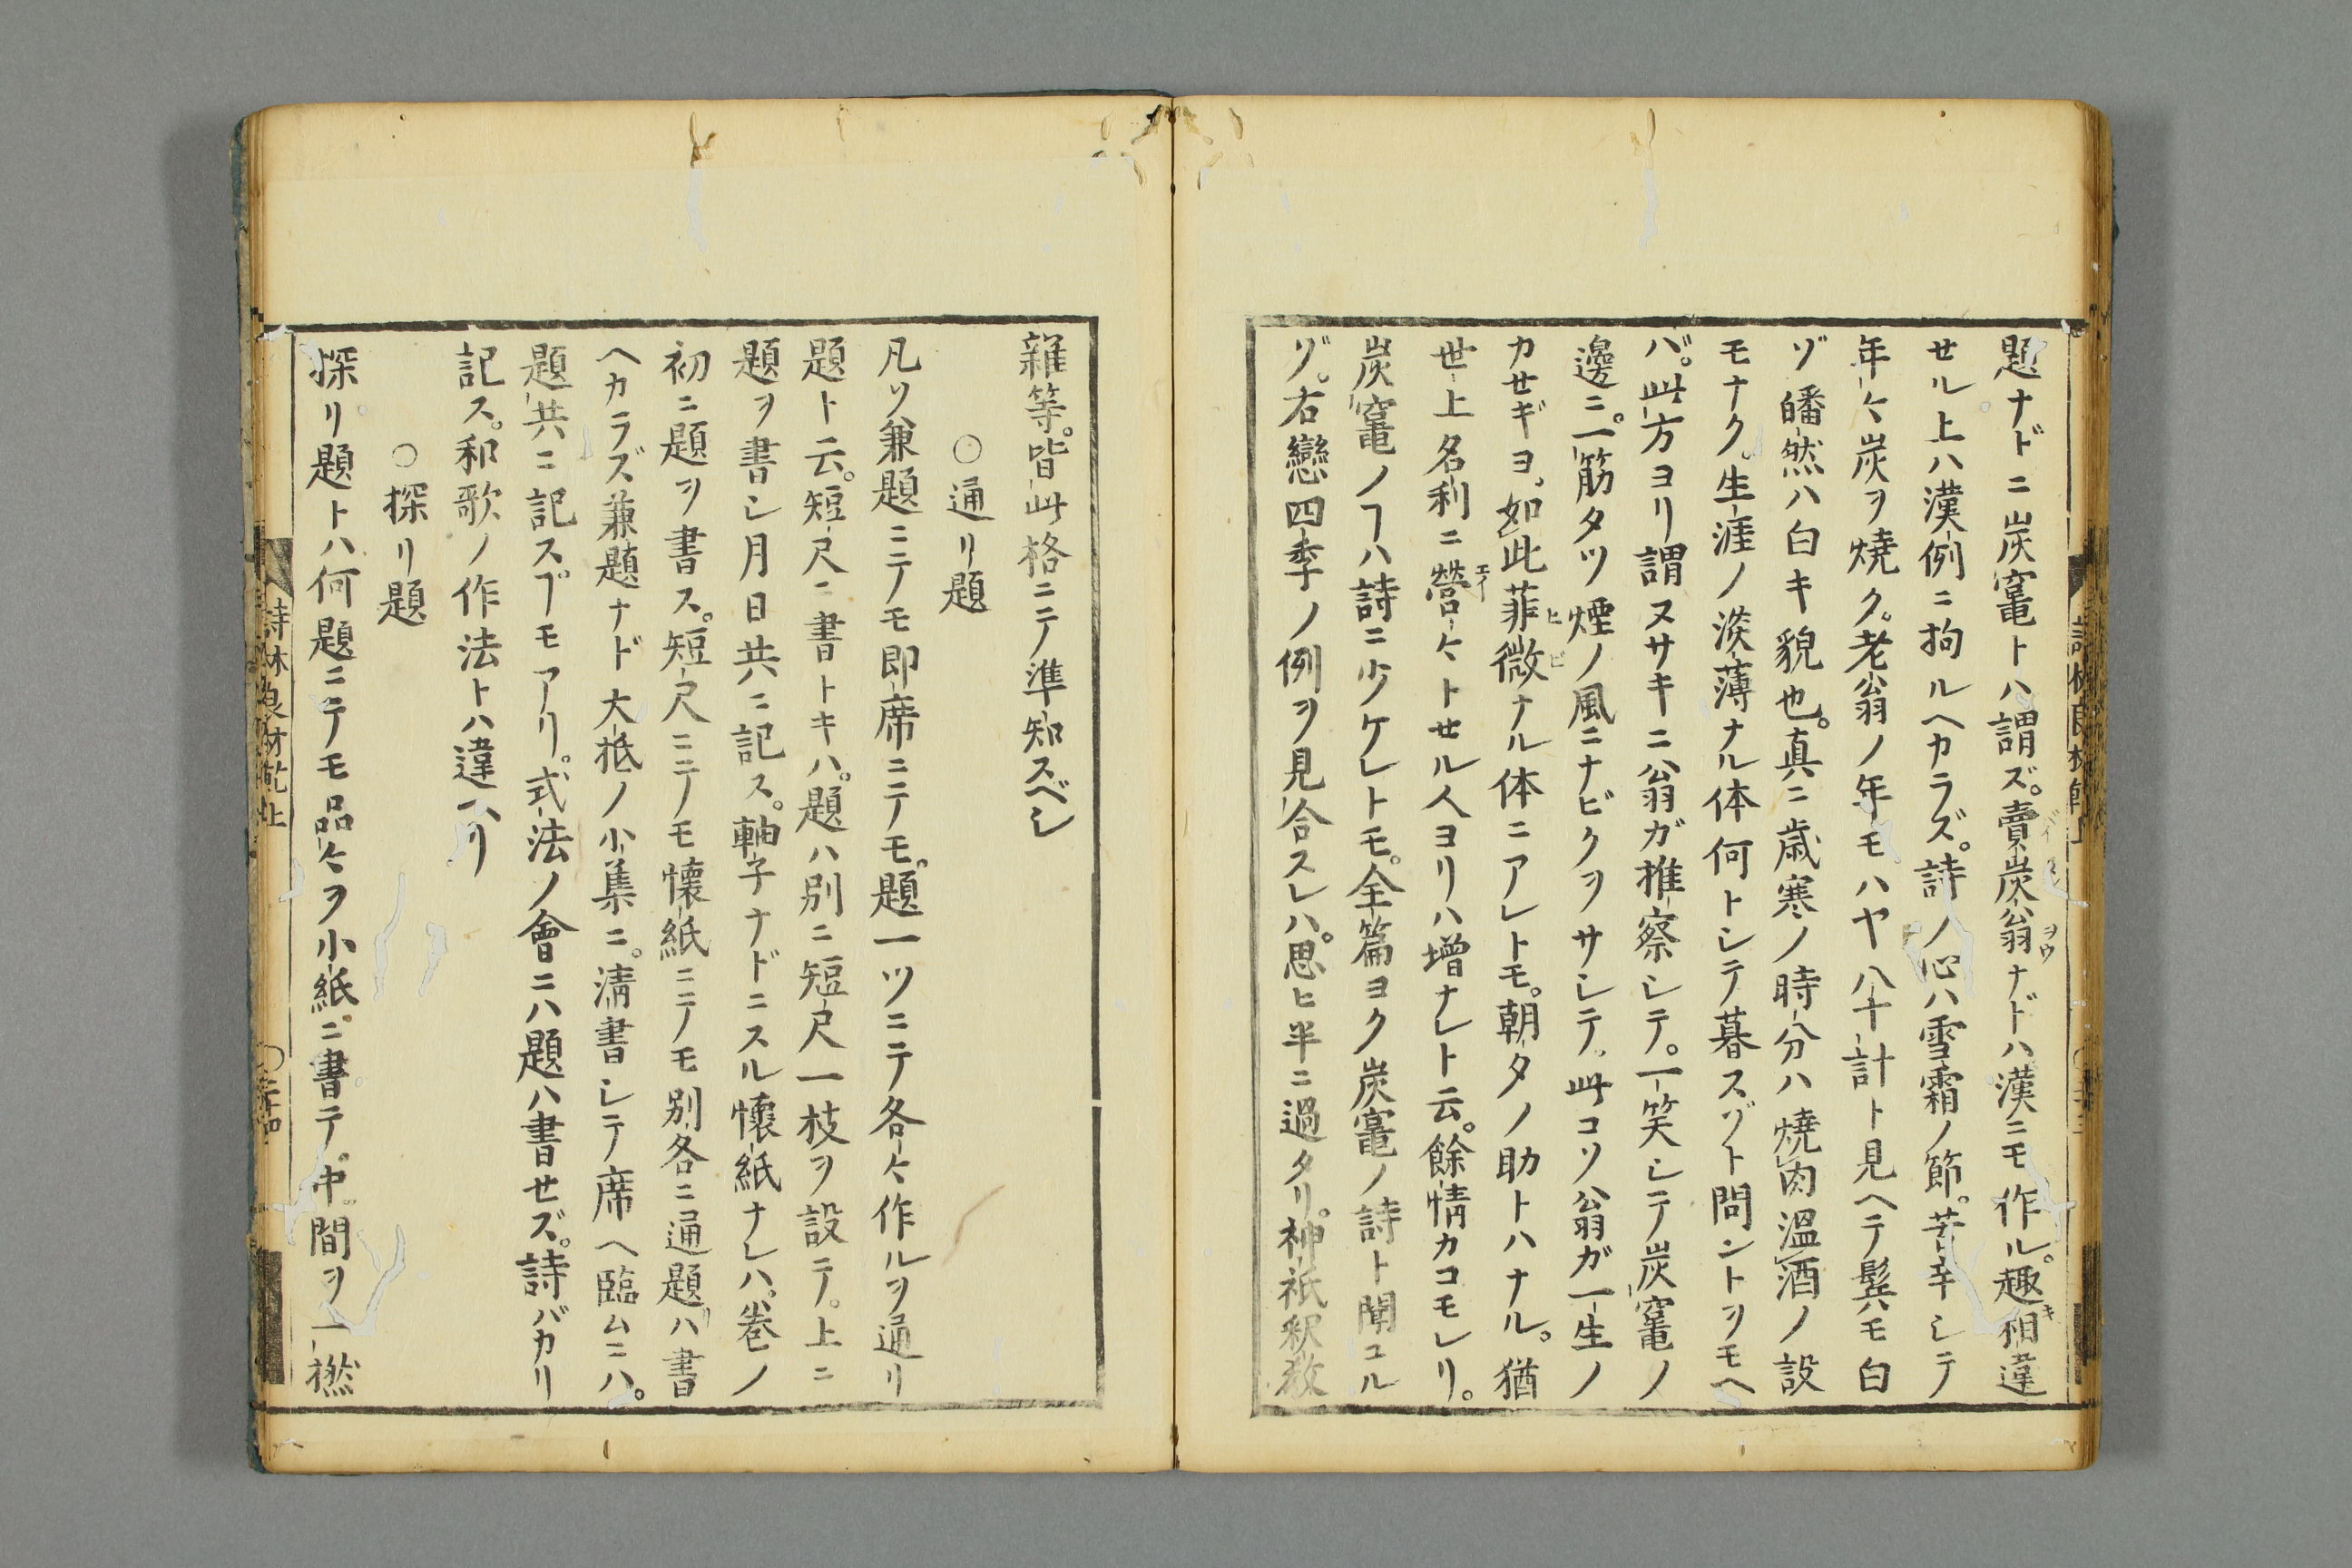 題ナドニ炭竃トハ謂ズ。賣炭翁ナドハ漢ニモ作ル。趣相違
セル上ハ漢例ニ拘ルヘカラズ。詩ノ心ハ雪霜ノ節。苦辛シテ
年々炭ヲ燒ク。老翁ノ年モハヤ八十計ト見ヘテ髪モ白
ゾ皤然ハ白キ貌也。真ニ歳寒ノ時分ハ燒肉温酒ノ設
モナク。生涯ノ淡薄ナル体何トシテ暮スゾト問ントヲモヘ
バ。此方ヨリ謂ヌサキニ翁ガ推察シテ。一笑シテ炭竃ノ
邊ニ。一筋タツ煙ノ風ニナビクヲサシテ。此コソ翁ガ一生ノ
カセギヨ。如此菲微ナル体ニアレトモ。朝タノ助トハナル。猶
世上名利ニ營々トセル人ヨリハ增ナレト云。餘情カコモレリ。
炭竃ノヿハ詩ニ少ケレトモ。全篇ヨク炭竃ノ詩ト聞ユル
ゾ。右戀四季ノ例ヲ見合スレハ。思ヒ半ニ過タリ。神祇釈教
雜等。皆此格ニテ準知スベシ
○通リ題
凡ソ兼題ニテモ即席ニテモ。題一ツニテ各々作ルヲ通リ
題ト云。短尺ニ書トキハ。題ハ別ニ短尺一枝ヲ設テ。上ニ
題ヲ書シ月日共ニ記ス。軸子ナドニスル懷紙ナレハ。巻ノ
初ニ題ヲ書ス。短尺ニテモ懷紙ニテモ別各ニ通題ハ書
ヘカラズ兼題ナド大抵ノ小集ニ。淸書シテ席ヘ臨ムニハ。
題共ニ記スヿモアリ。式法ノ會ニハ題ハ書セズ。詩バカリ
記ス。和歌ノ作法トハ違ヘリ
○探リ題
探リ題トハ何題ニテモ品々ヲ小紙ニ書テ。中間ヲ一撚
詩林良材乾上